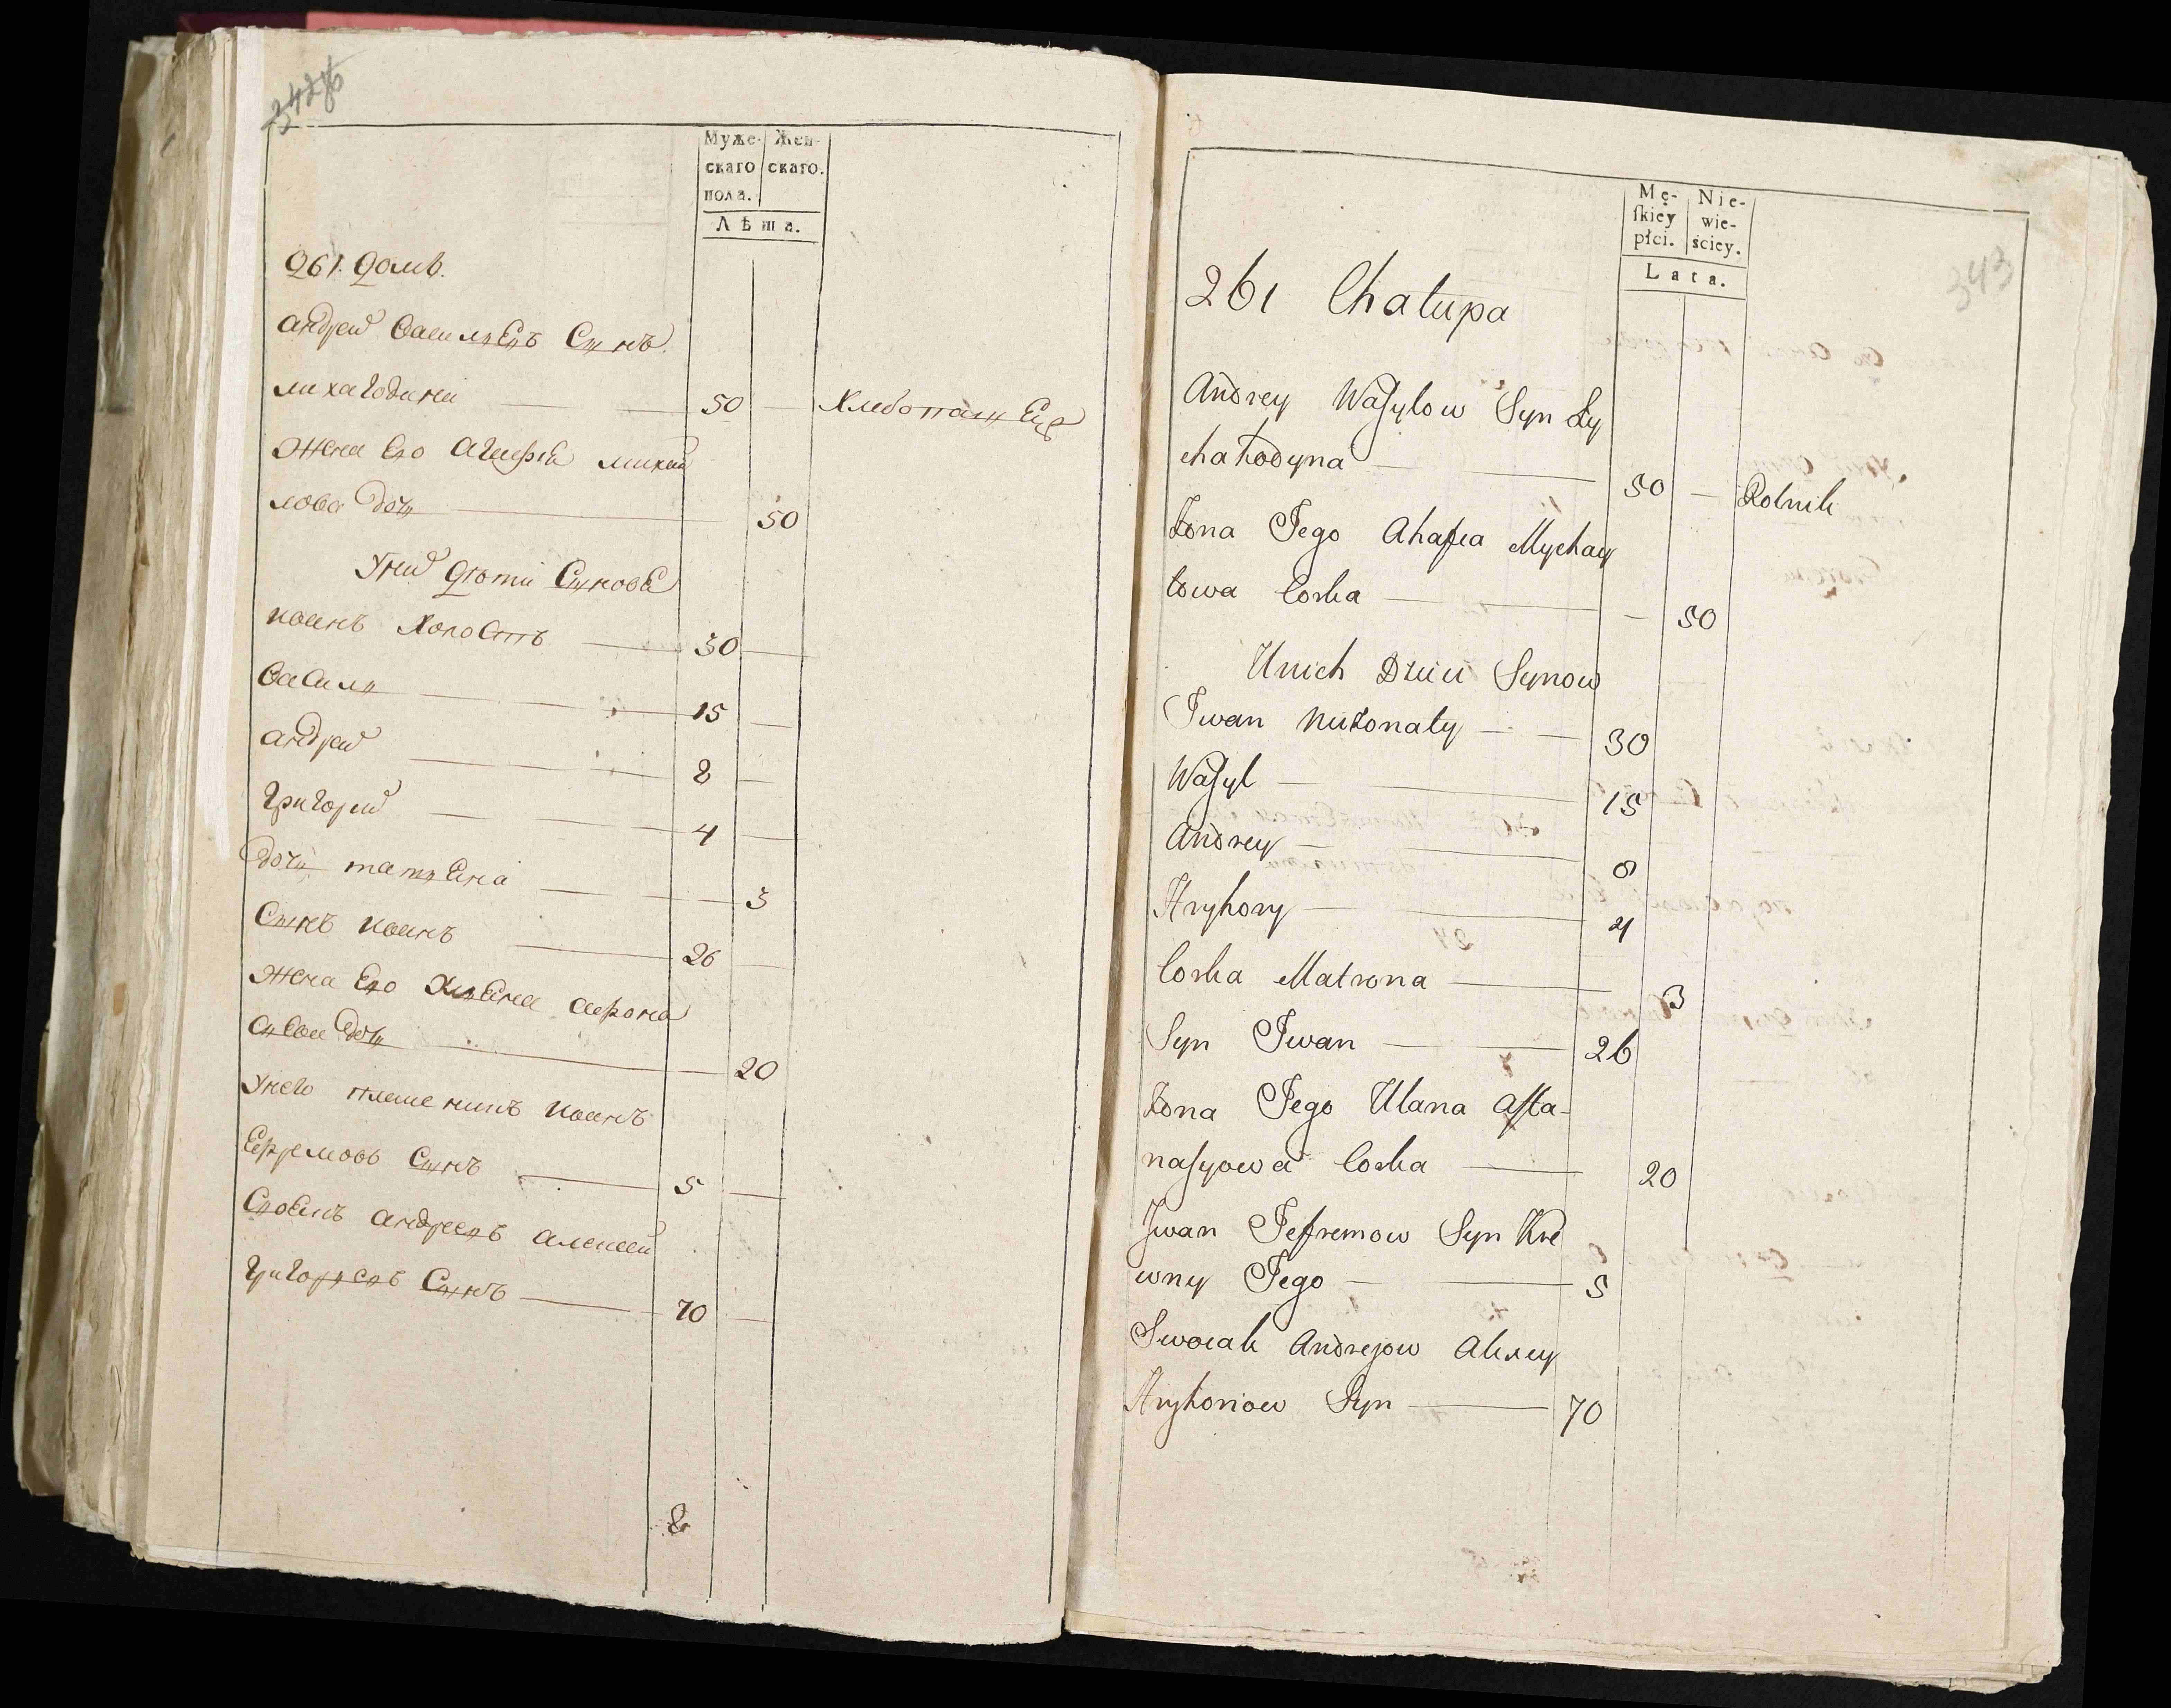 342об
Муже-
скаго
пола.
Жен-
скаго.
Лѣта.
261. домъ.
Андрей Васильевъ Сынъ
лихагодини 50 — Хлебопашец
Жена Его Агафiя михай
лова дочь 50
У них дѣти Сыновѣ
иванъ Холостъ 30 —
Василь 15 —
андрей 8 —
григорей 4 —
дочь татьяна — 3
Сынъ иванъ 26 —
Жена Его Ульяна афона
сьева дочь — 20
У него племеникъ иванъ
Ефремовъ Сынъ 5 —
Своякъ андреевъ алексей
григорьевъ Сынъ 70 —
8
343
Mę-
ſkiey
płci.
Nie-
wie-
ściey.
Lata.
261 Chałupa
Andrey Waſylow Syn Ly
chahodyna 50 — Rolnik
Żona Jego Ahafia Mychay
łowa Corka — 50
Unich Dzieci Synow
Iwan Nieżonaty 30
Waſyl 15
Andrey 8
Hryhory 4
Corka Matrona 3
Syn Iwan 26
Żona Jego Ulana Afta-
naſyowa Corka 20
Iwan Jefremow Syn Kre
wny Jego 5
Swoiak Andrejow Alexey
Hryhoriow Syn 70